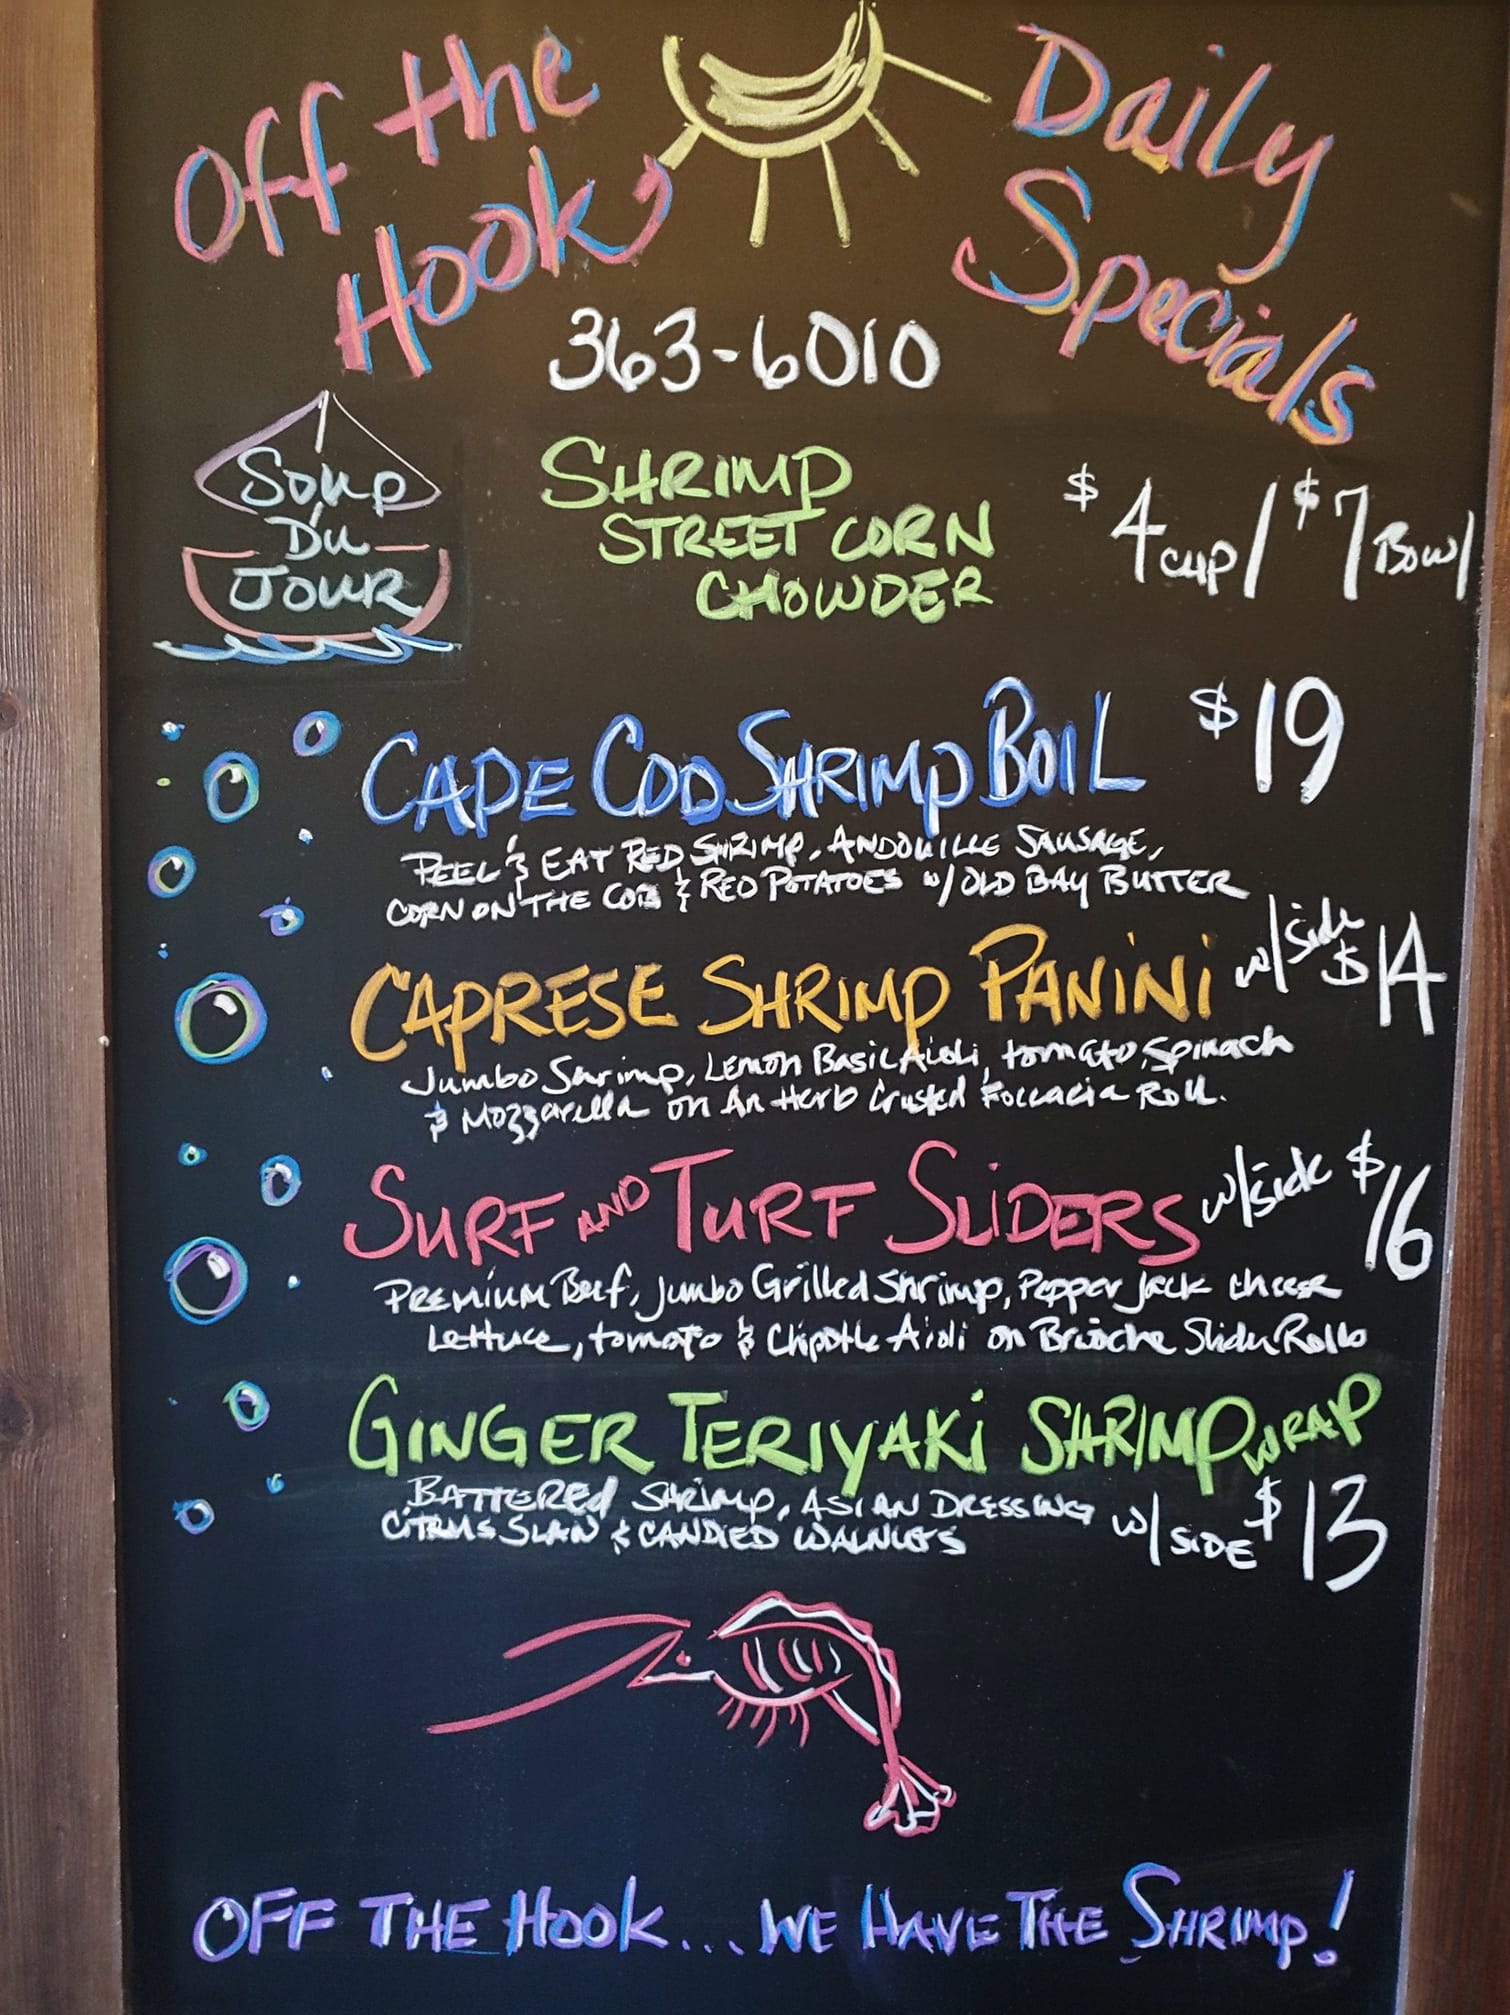 Off the
Hook
Daily
Specials
363-6010
Soup
Du
Jour
SHRIMP
STREET CORN
CHOWDER
$4 cup / $7 Bowl
CAPE COD SHRIMP BOIL $19
PEEL & EAT RED SHRIMP, ANDOUILLE SAUSAGE,
CORN ON THE COB & RED POTATOES w/ OLD BAY BUTTER
CAPRESE SHRIMP PANINI w/side $14
Jumbo Shrimp, Lemon Basil Aioli, tomato, Spinach
& Mozzarella on An Herb Crusted Foccacia Roll.
SURF AND TURF SLIDERS w/side $16
PREMIUM Beef, Jumbo Grilled Shrimp, Pepper Jack cheese
Lettuce, tomato & Chipotle Aioli on Brioche Slider Rolls
GINGER TERIYAKI SHRIMP WRAP
BATTERED SHRIMP, ASIAN DRESSING
CITRUS SLAW & CANDIED WALNUTS w/ SIDE $13
OFF THE HOOK... WE HAVE THE SHRIMP!